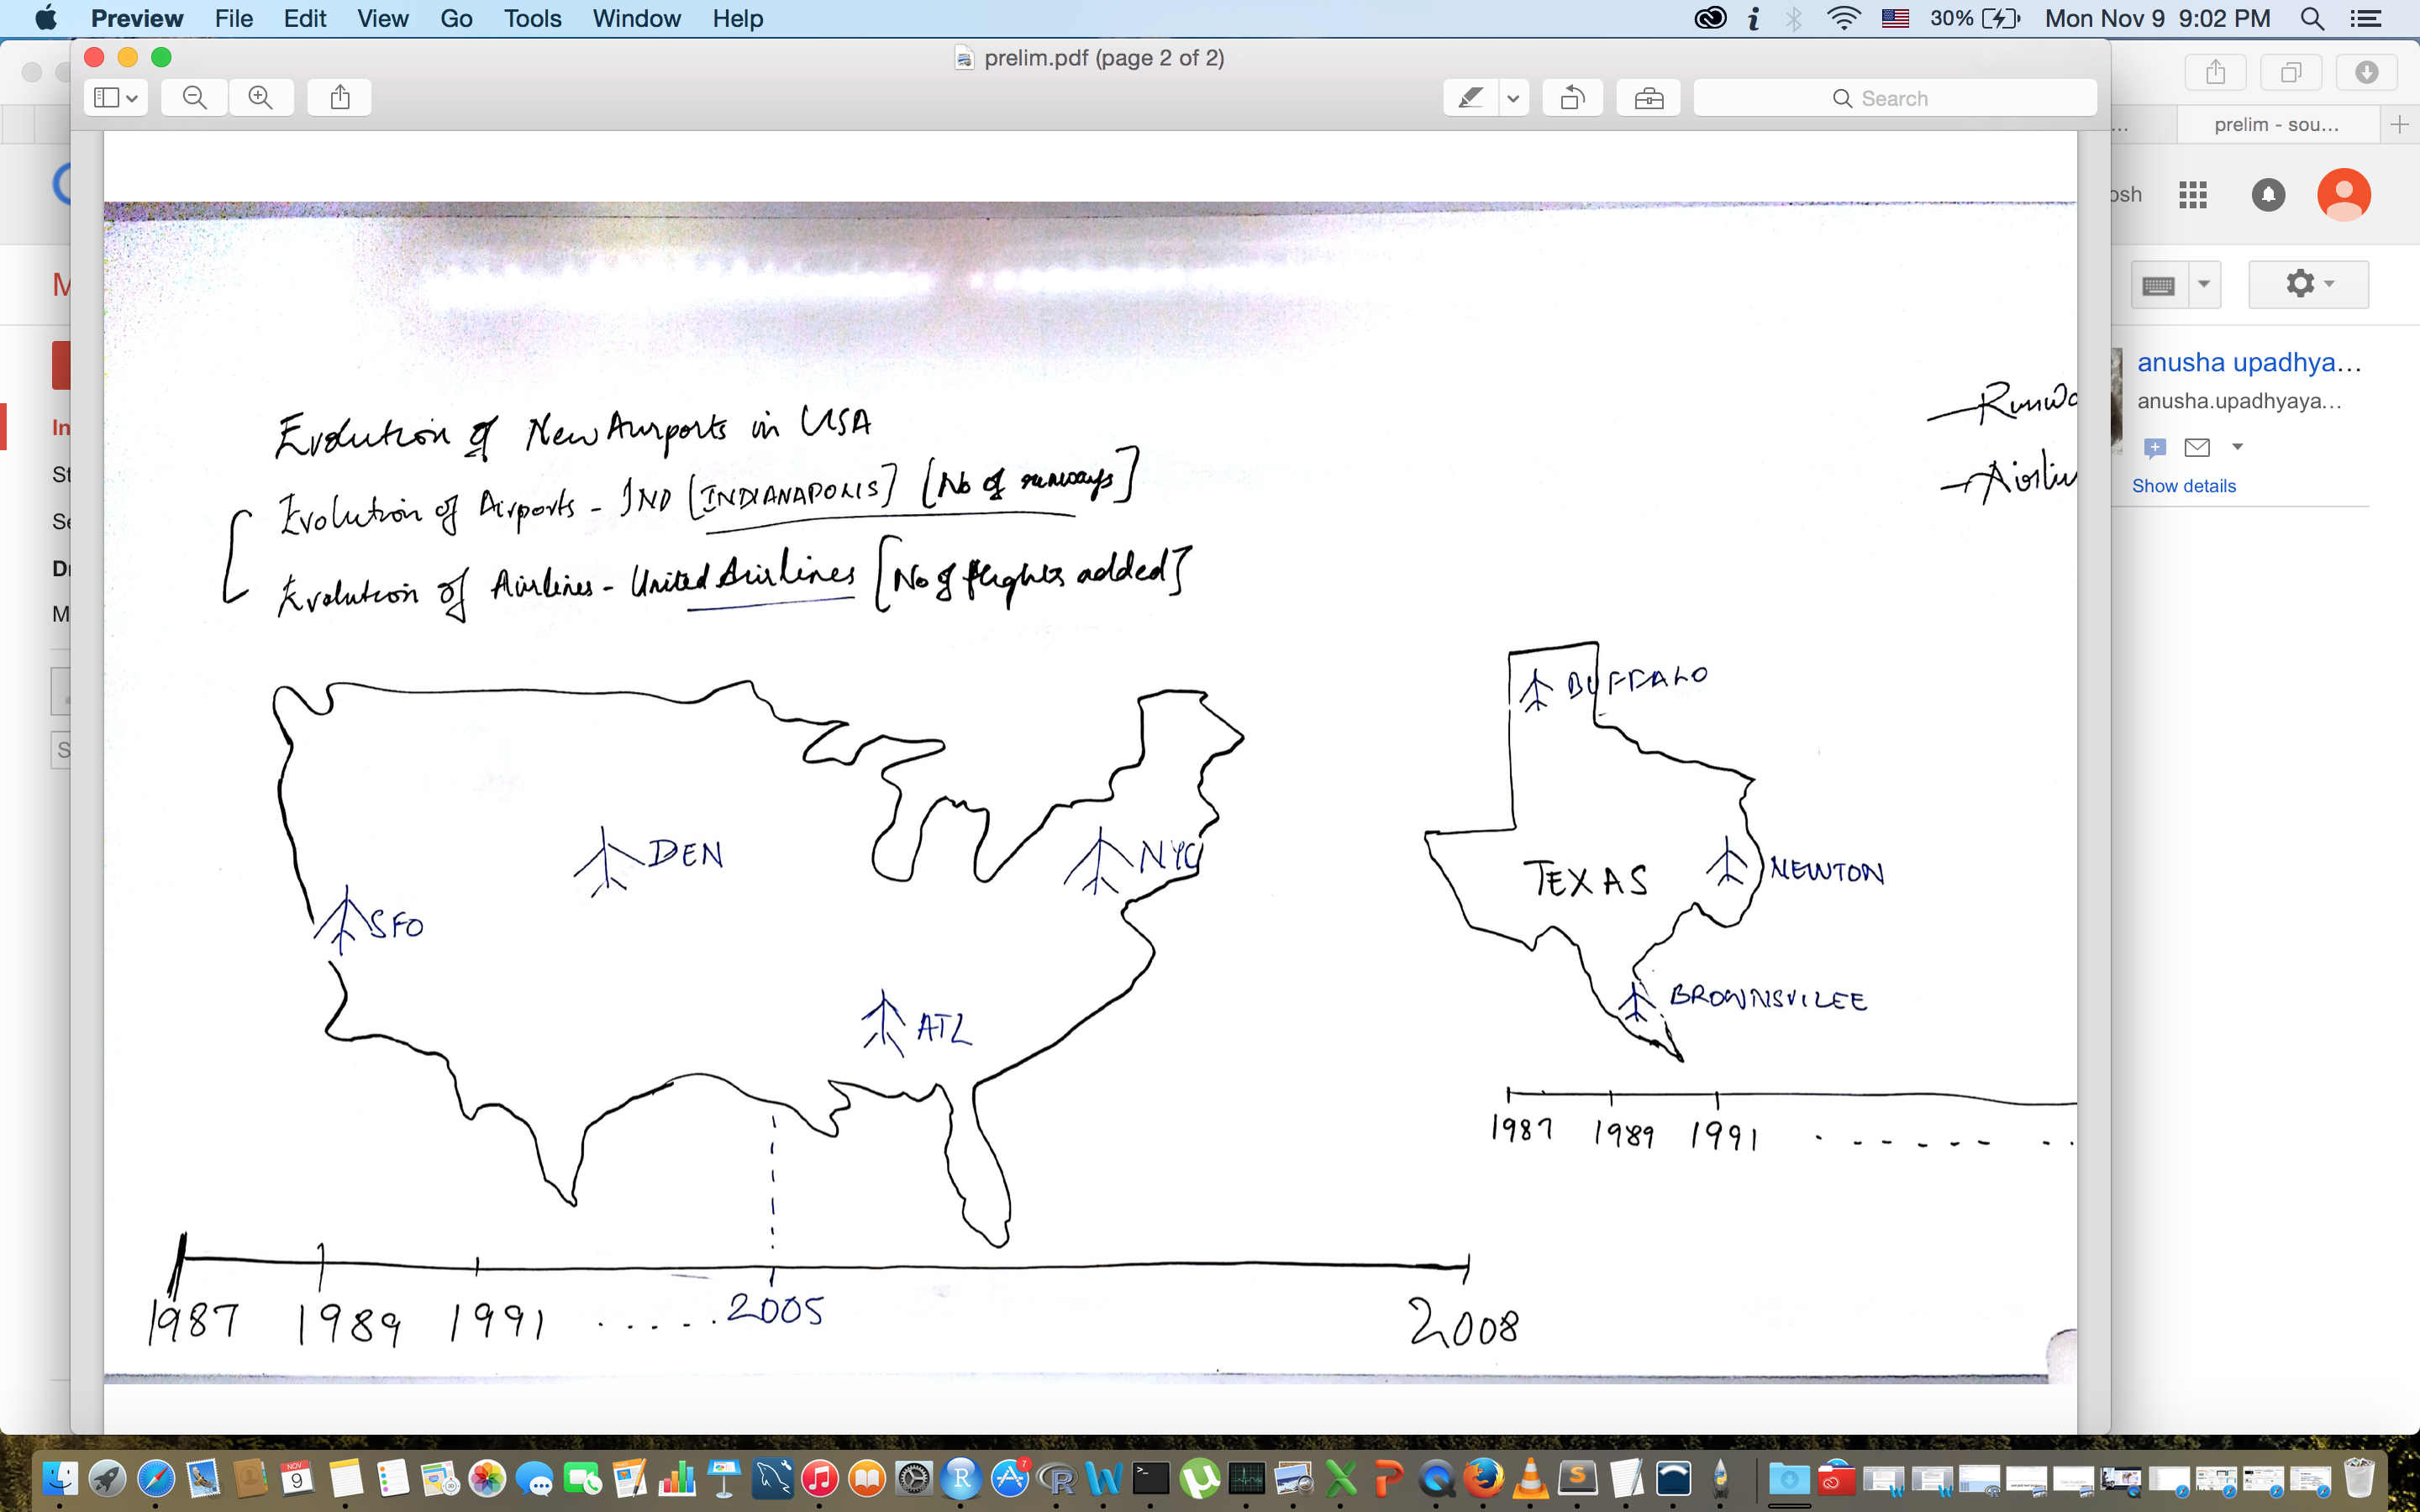 Preview File Edit View Go Tools Window Help 30% Mon Nov 9 9:02 PM
prelim.pdf (page 2 of 2)
Search
prelim - sou...
osh
anusha upadhya...
anusha.upadhyaya...
Show details
M
In
St
Se
Dr
M
S
Evolution of New Airports in USA
Evolution of Airports - IND [INDIANAPOLIS] [No of runways]
Evolution of Airlines - United Airlines [No of flights added]
Runwa
Airlin
DEN
NYC
SFO
ATL
BUFFALO
TEXAS
NEWTON
BROWNSVILEE
1987 1989 1991
1987 1989 1991 ..... 2005 2008
NOV
9
7